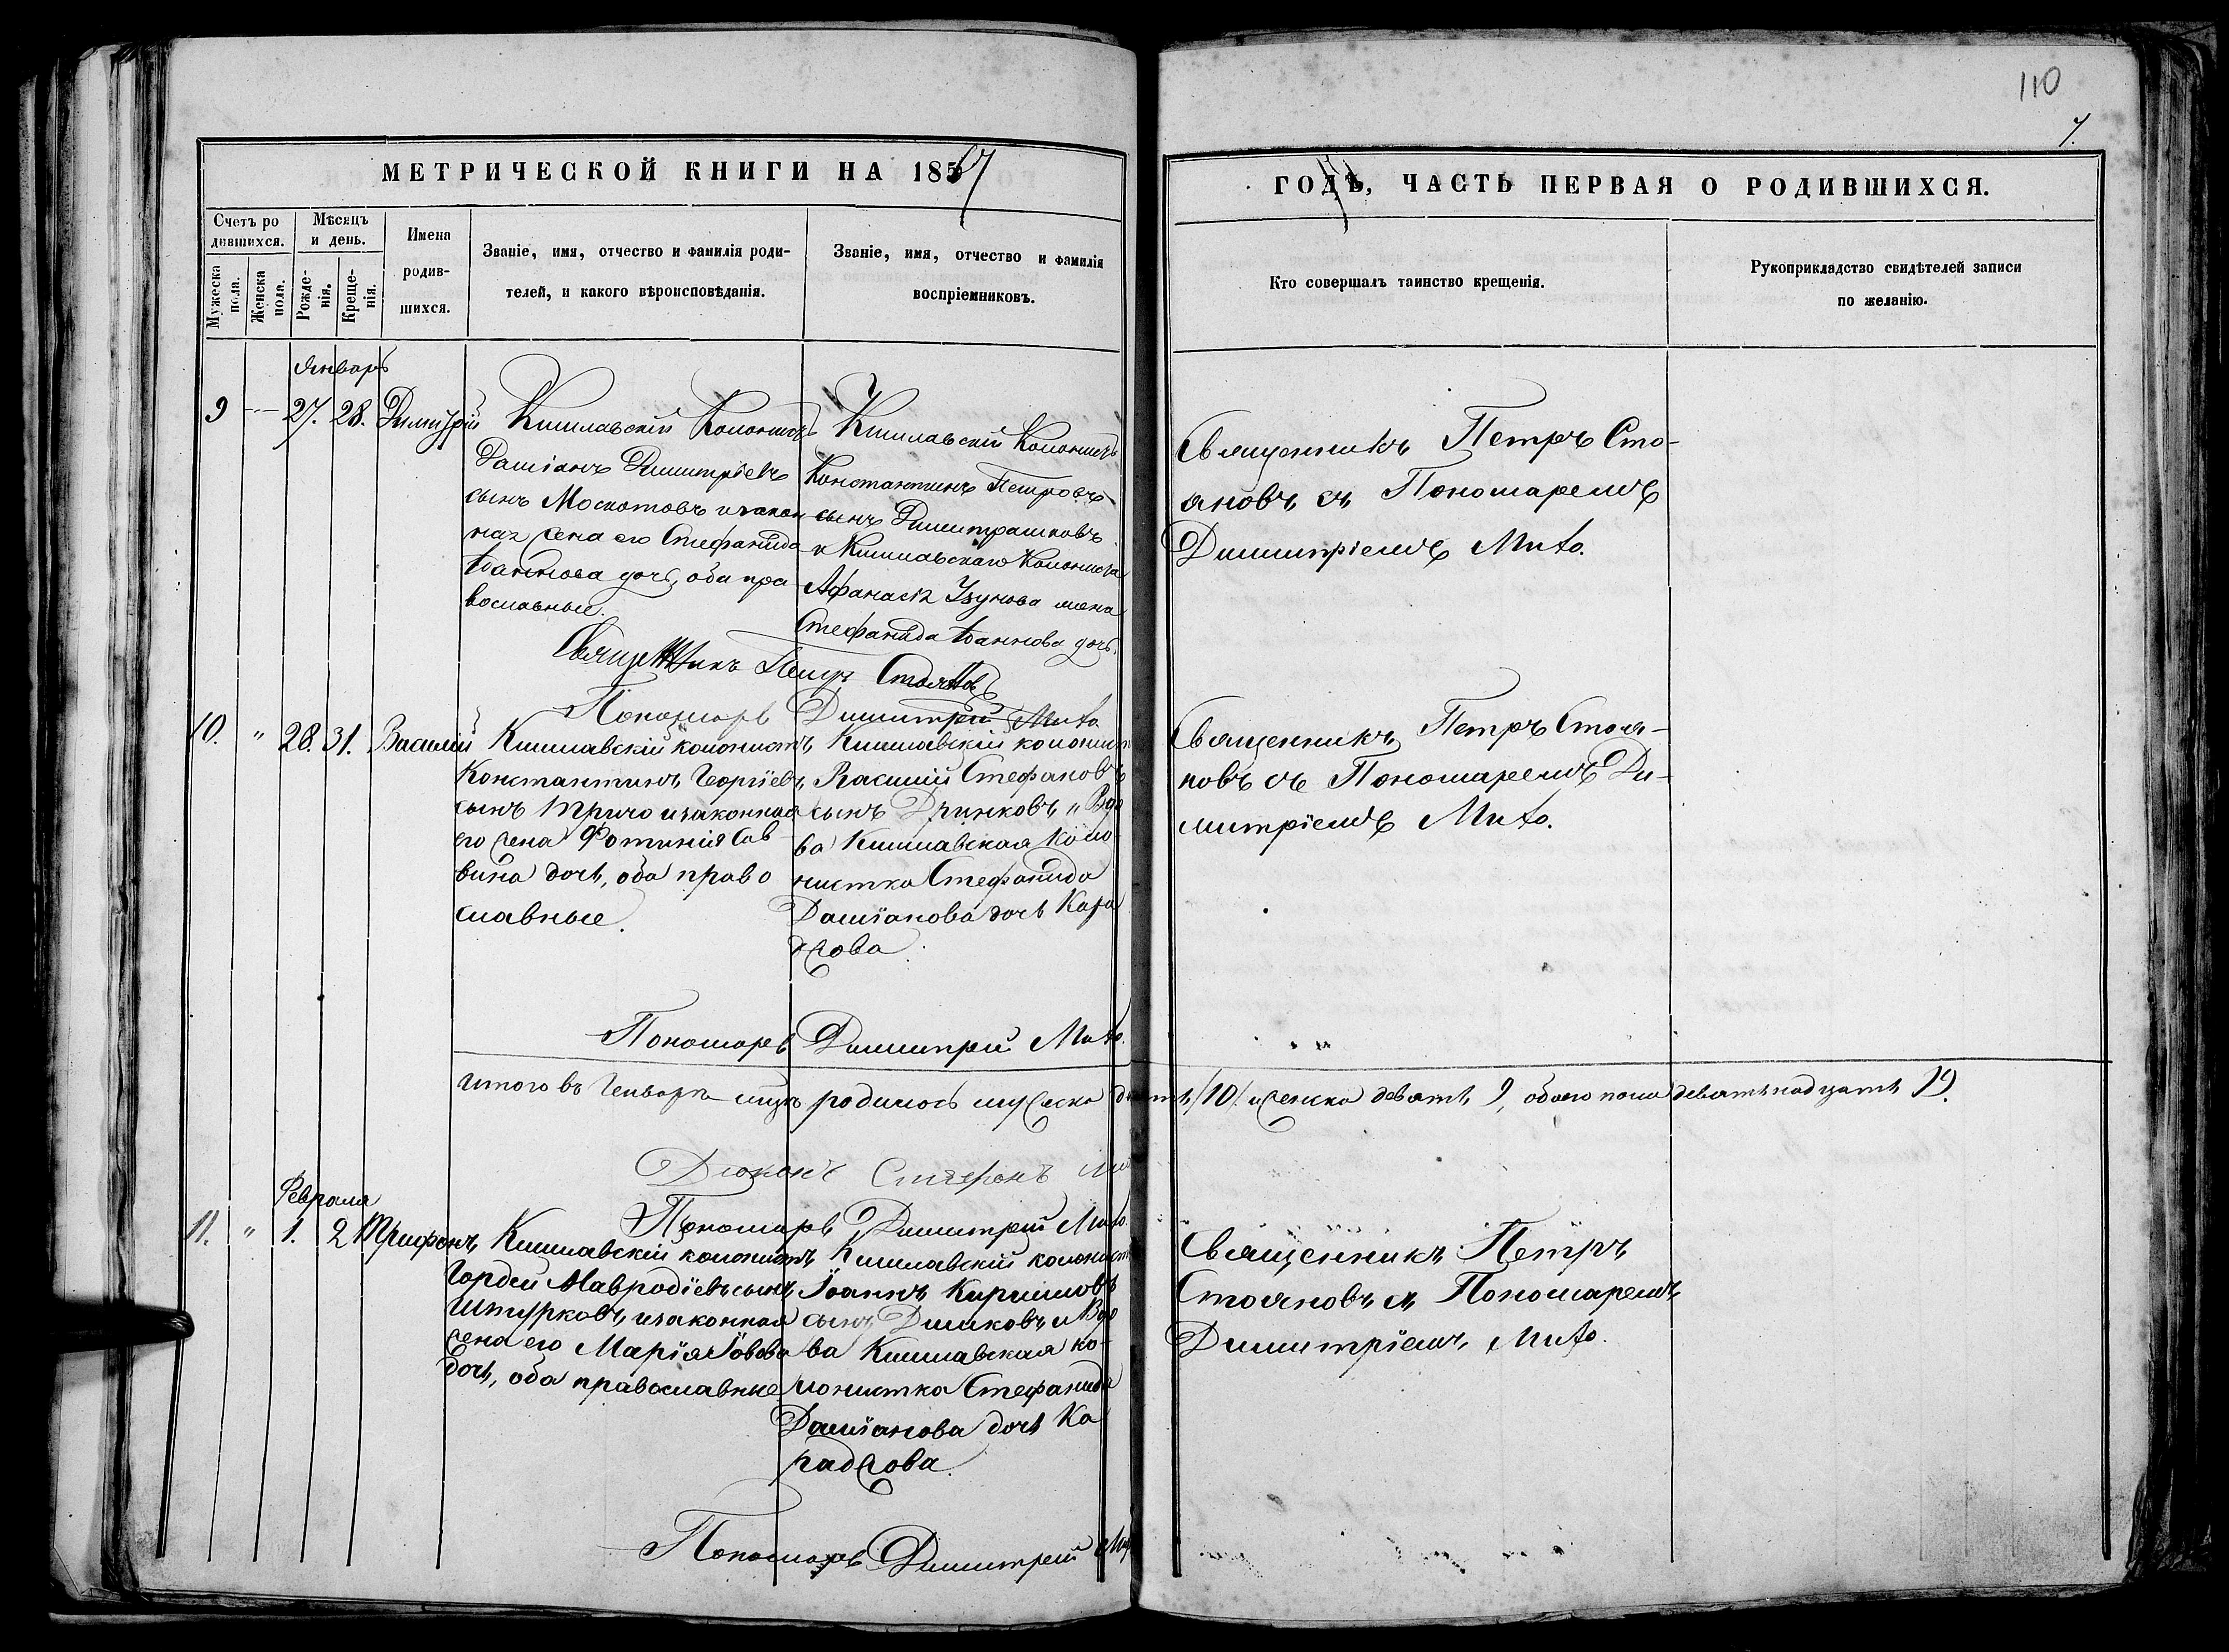 110
7.
МЕТРИЧЕСКОЙ КНИГИ НА 1857
ГОДЪ, ЧАСТЬ ПЕРВАЯ О РОДИВШИХСЯ.
Счетъ ро
дившихся.
Мужеска
пола.
Женска
пола.
Мѣсяцъ
и день.
Рожде-
нія.
Креще-
нія.
Имена
родив-
шихся.
Званіе, имя, отчество и фамилія роди-
телей, и какого вѣроисповѣданія.
Званіе, имя, отчество и фамилія
воспріемниковъ.
Кто совершалъ таинство крещенія.
Рукоприкладство свидѣтелей записи
по желанію.
Январь
9 — 27. 28. Димитрій
Кишлавскій Колонистъ
Даміанъ Димитріевъ
сынъ Москотовъ и закон
ная жена его Стефанида
Іоаннова дочь, оба пра
вославные.
Кишлавскій Колонистъ
Константинъ Петровъ
сынъ Димитрашковъ
и Кишлавскаго Колониста
Афанасія Узунова жена
Стефанида Іоаннова дочь.
Священникъ Петръ Сто-
яновъ съ Пономаремъ
Димитріемъ Мито.
Священникъ Петръ Стояновъ
Пономарь Димитрей Мито.
10. " 28. 31. Василій
Кишлавскій колонистъ
Константинъ Георгіевъ
сынъ Тричо и законная
его жена Фотинія Сав
вина дочь, оба право
славные.
Кишлавскій колонист
Василій Стефановъ
сынъ Дринковъ "Вдо
ва Кишлавская коло-
нистка Стефанида
Даміанова дочь Кара
джова.
Священникъ Петръ Стоя-
новъ съ Пономаремъ Ди-
митріемъ Мито.
Пономарь Димитрей Мито.
Итого въ Генварѣ мцѣ родилось мужеска десять /10/. и женска девять 9, обоего пола девятьнадцать 19.
Дьяконъ Стефанъ
Пономарь Димитрей Мито.
Февраля
11. " 1. 2 Трифонъ
Кишлавскій колонистъ
Гордей Мавродіевъ сынъ
Штурковъ, и законная
жена его Марія Іовова
дочь, оба православные
Кишлавскій колонист
Іоаннъ Кирилловъ
сынъ Димковъ и Вдо
ва Кишлавская ко-
лонистка Стефанида
Даміанова дочь Ка
раджова.
Священникъ Петръ
Стояновъ съ Пономаремъ
Димитріемъ Мито.
Пономарь Димитрей